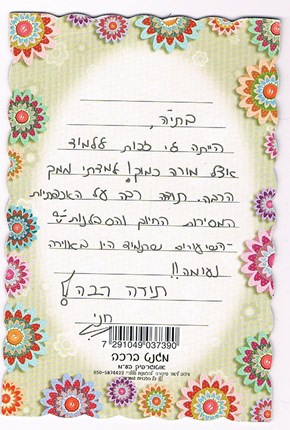 בתיה,
הייתה לי זכות ללמוד
אצל מורה כמוך! למדתי ממך
הרבה. תודה רבה על האכפתיות
המסירות החיוך והסבלנות
השיעורים שתמיד היו באוירה
נעימה!!
תודה רבה!
חני
7 291049 037390
משגט ברכה